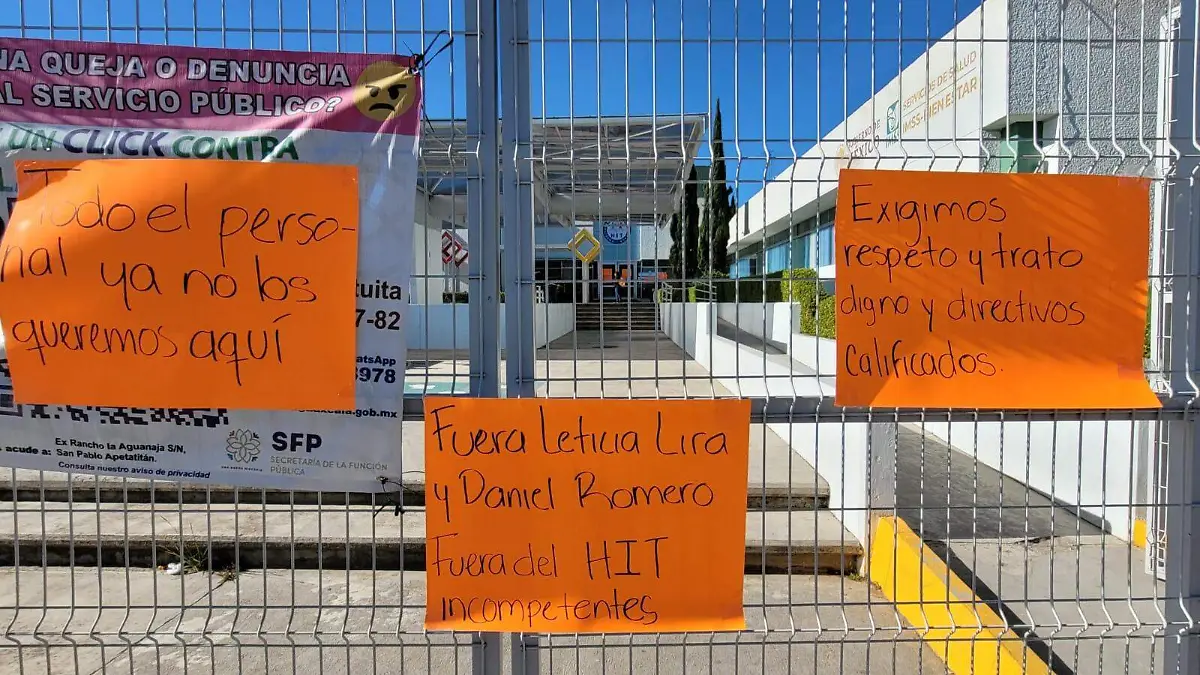 NA QUEJA O DENUNCIA
AL SERVICIO PÚBLICO?
UN CLICK CONTRA
Todo el perso-
nal ya no los
queremos aquí
tuita
7-82
atsApp
8978
.gob.mx
Ex Rancho la Aguanaja S/N,
acude a: San Pablo Apetatitán.
Consulta nuestro aviso de privacidad
SFP
SECRETARÍA DE LA FUNCIÓN
PÚBLICA
Fuera Leticia Lira
y Daniel Romero
Fuera del HIT
incompetentes
HIT
SERVICIOS DE SALUD
IMSS-BIENESTAR
Exigimos
respeto y trato
digno y directivos
Calificados.